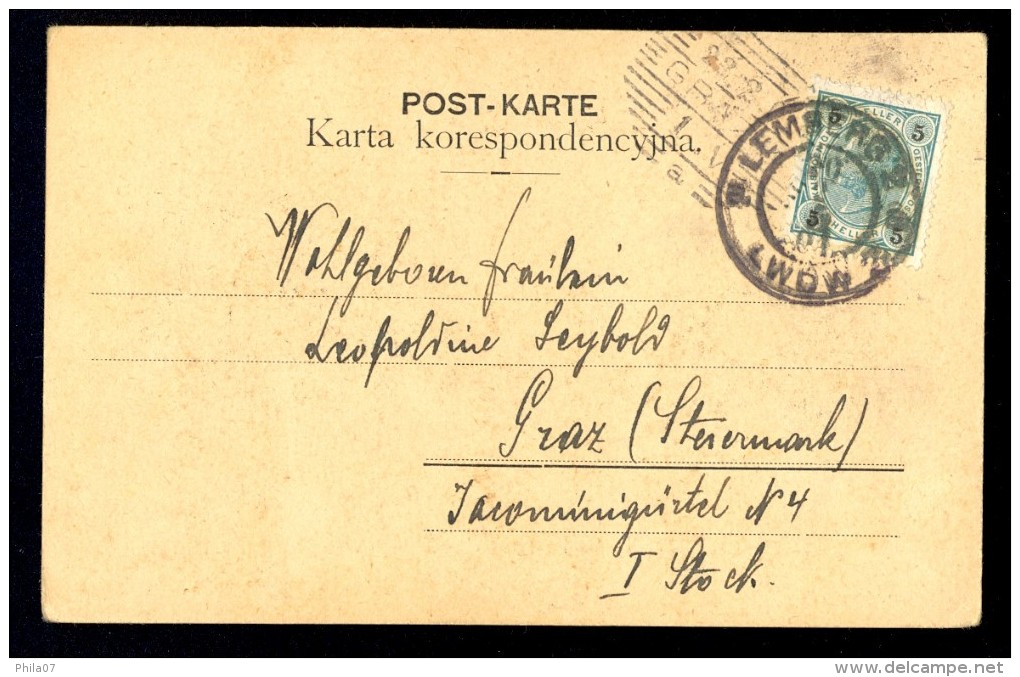 POST-KARTE
Karta korespondencyjna.
GRAZ
1
a
LEMBERG
LWÓW
5 HELLER 5
5 HELLER 5
Wohlgeboren Fräulein
Leopoldine Seybold
Graz (Steiermark)
Jacominigürtel N 4
I Stock.
Phila07
www.delcampe.net